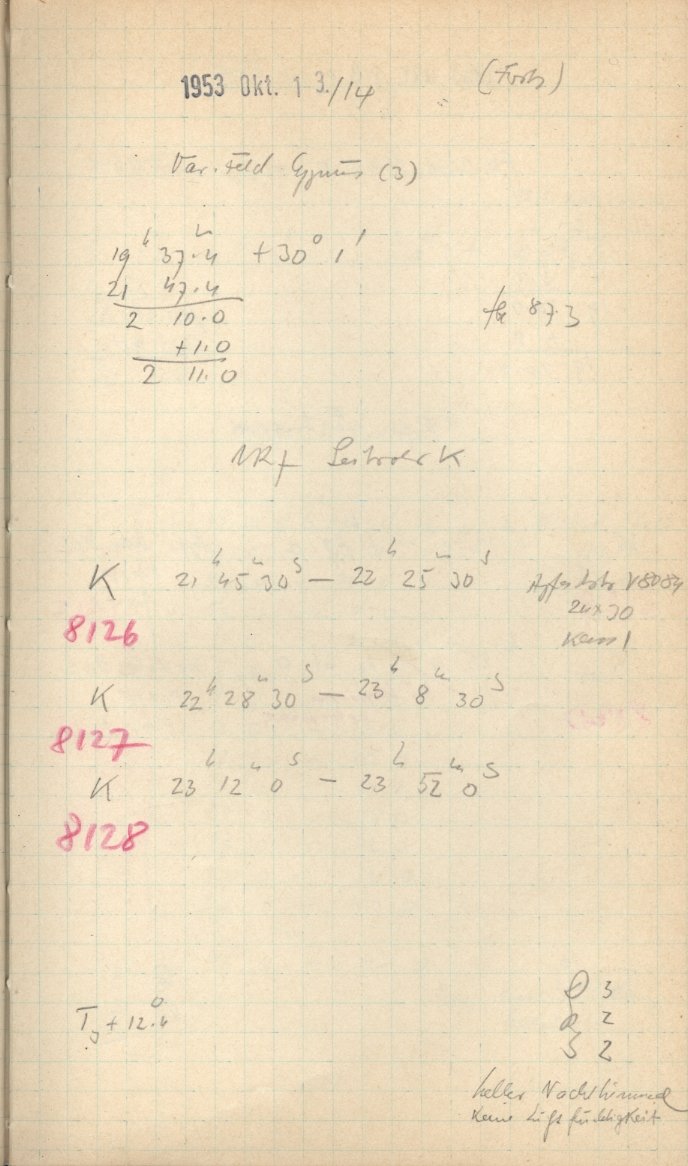 1953 Okt. 13./14
Var. Feld Cygnus (3)
19ʰ 37.4ᵐ +30° 1'
21 47.4
2 10.0
+1.0
2 11.0
87.3
K
K 21ʰ 45ᵐ 30ˢ — 22ʰ 25ᵐ 30ˢ
V8084
24×30
8126
K 22ʰ 28ᵐ 30ˢ — 23ʰ 8ᵐ 30ˢ
8127
K 23ʰ 12ᵐ 0ˢ — 23ʰ 52ᵐ 0ˢ
8128
3
T + 12.4°
2
S 2
heller Nachthimmel
keine Luftfeuchtigkeit